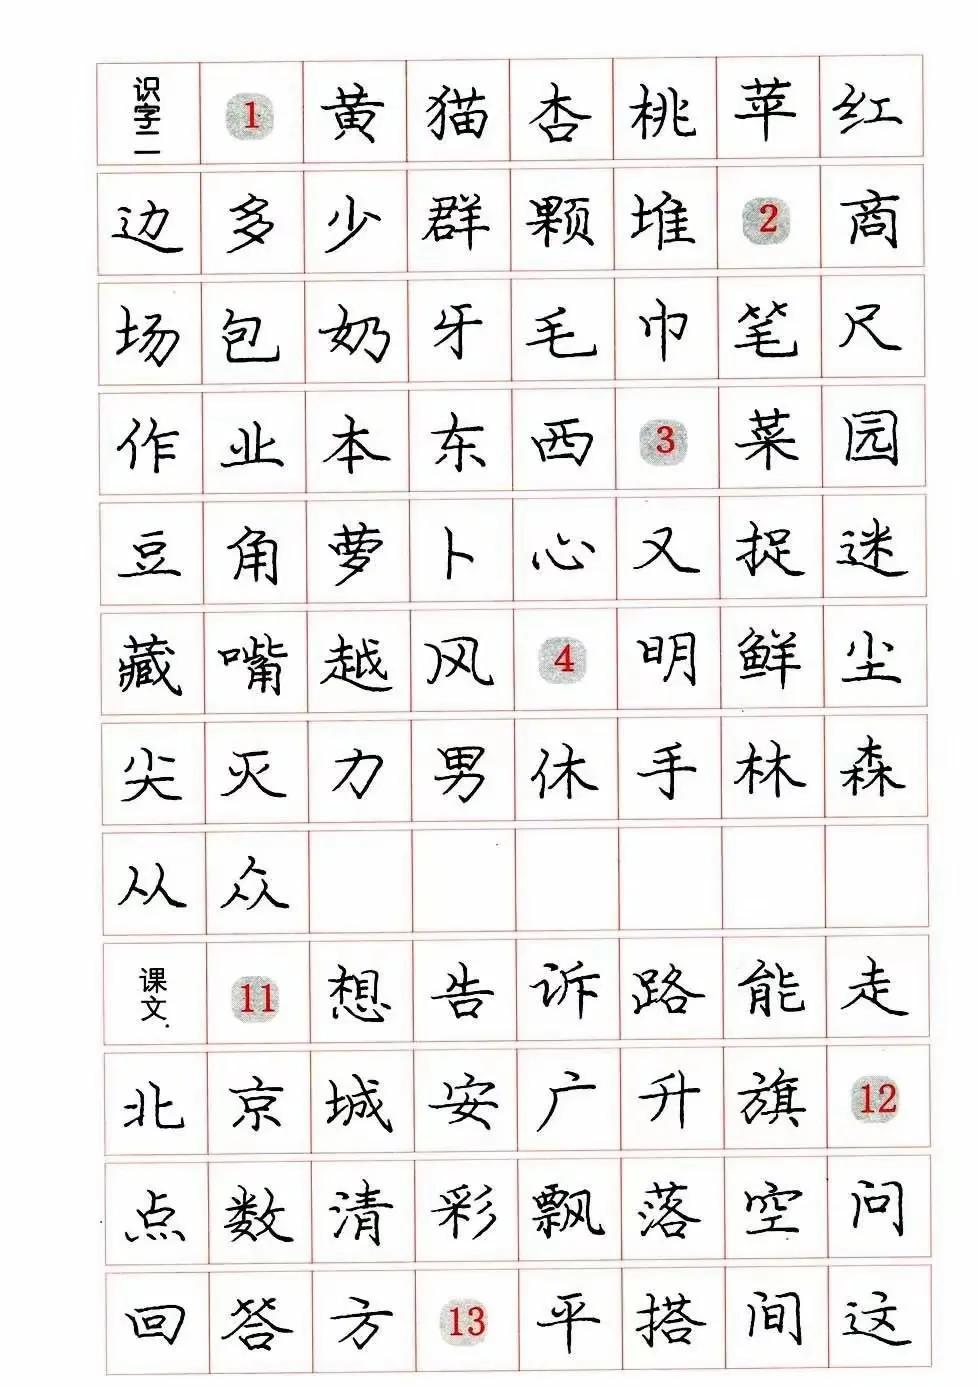 识字二 1 黄 猫 杏 桃 苹 红
边 多 少 群 颗 堆 2 商
场 包 奶 牙 毛 巾 笔 尺
作 业 本 东 西 3 菜 园
豆 角 萝 卜 心 又 捉 迷
藏 嘴 越 风 4 明 鲜 尘
尖 灭 力 男 休 手 林 森
从 众
课文 11 想 告 诉 路 能 走
北 京 城 安 广 升 旗 12
点 数 清 彩 飘 落 空 问
回 答 方 13 平 搭 间 这